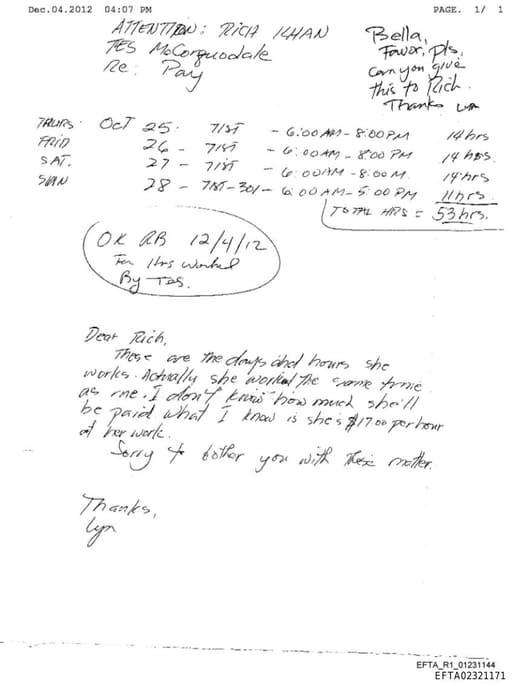 Dec.04.2012 04:07 PM PAGE. 1/ 1
ATTENTION: RICH KHAN
TES McCorquodale
Re: Pay
Bella,
Favor, pls,
can you give
this to Rich.
Thanks
THURS. OCT 25. 71ST - 6:00 AM - 8:00 PM 14 hrs
FRID 26 - 71ST - 6:00 AM - 8:00 PM 14 hrs
SAT. 27 - 71ST - 6:00 AM - 8:00 M. 14 hrs
SUN 28 - 71ST - 301 - 6:00 AM - 5:00 PM 11 hrs.
TOTAL HRS = 53 hrs.
OK RB 12/4/12
For Hrs Worked
By TES.
Dear Rich,
These are the days and hours she
works. Actually she worked the same time
as me. I don't know how much she'll
be paid what I know is she's $17.00 per hour
at her work.
Sorry to bother you with these matter.
Thanks,
Lyn
EFTA_R1_01231144
EFTA02321171